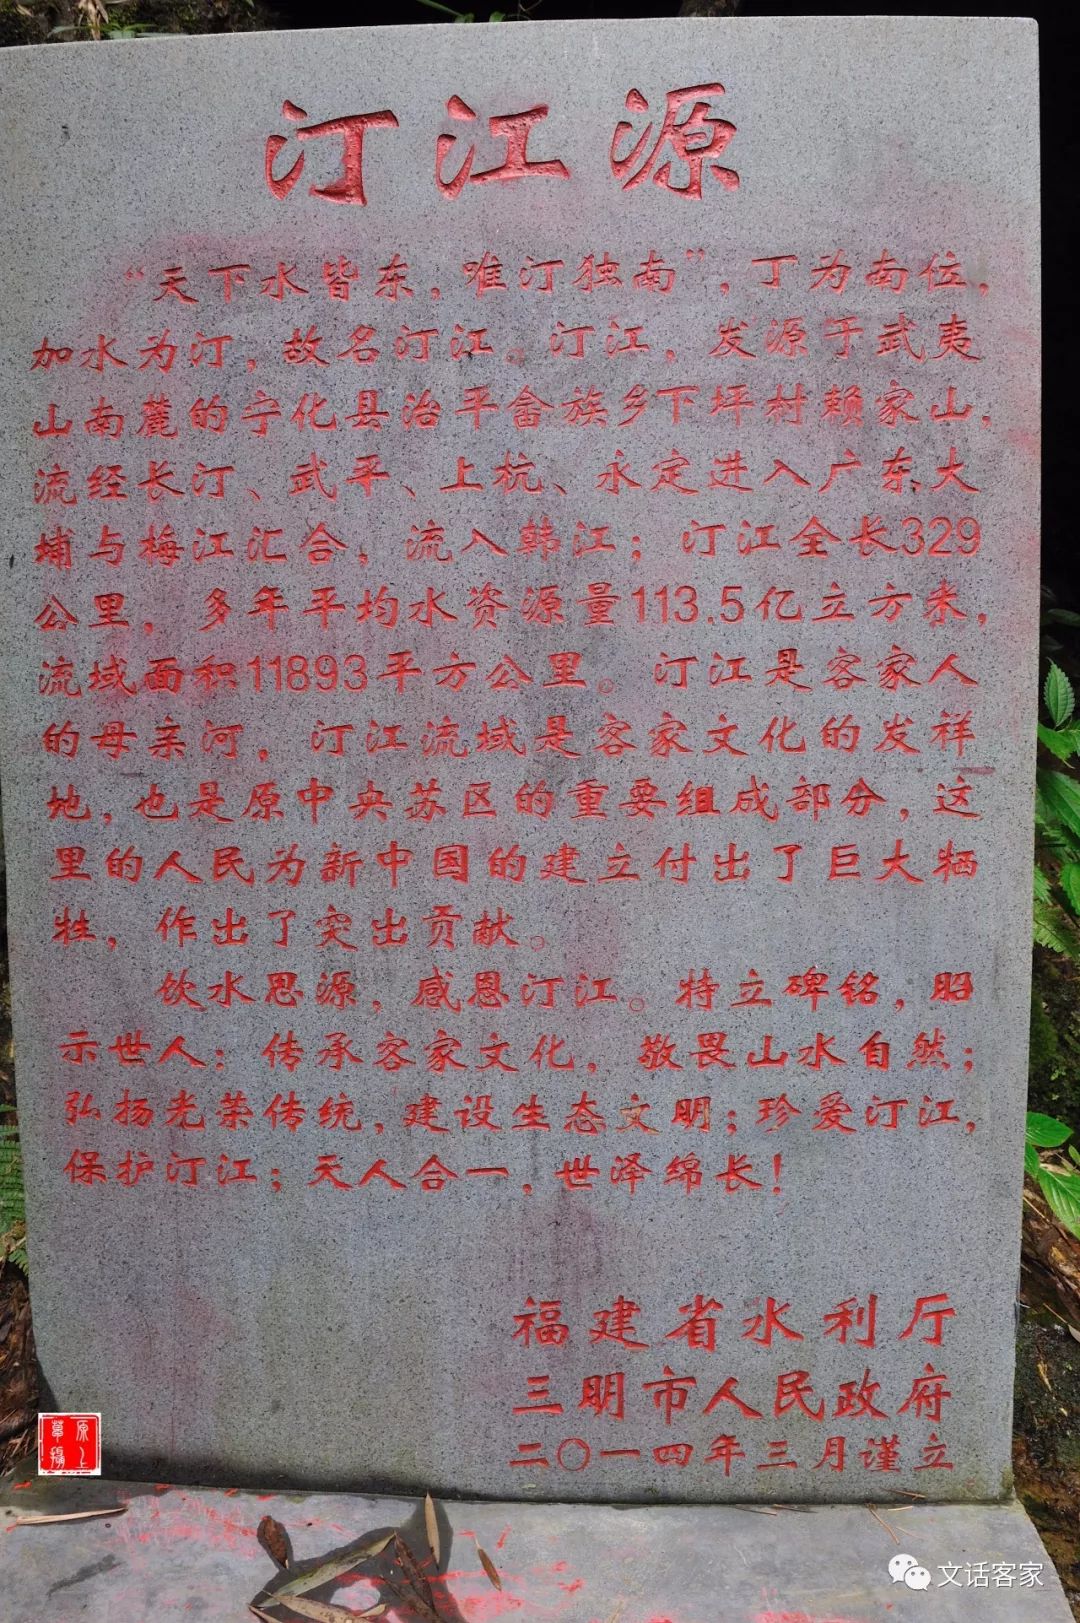 汀江源
“天下水皆东，唯汀独南”，丁为南位，
加水为汀，故名汀江。汀江，发源于武夷
山南麓的宁化县治平畲族乡下坪村赖家山，
流经长汀、武平、上杭、永定进入广东大
埔与梅江汇合，流入韩江；汀江全长329
公里，多年平均水资源量113.5亿立方米，
流域面积11893平方公里。汀江是客家人
的母亲河，汀江流域是客家文化的发祥
地，也是原中央苏区的重要组成部分，这
里的人民为新中国的建立付出了巨大牺
牲，作出了突出贡献。
饮水思源，感恩汀江。特立碑铭，昭
示世人：传承客家文化，敬畏山水自然；
弘扬光荣传统，建设生态文明；珍爱汀江，
保护汀江；天人合一，世泽绵长！
福建省水利厅
三明市人民政府
二〇一四年三月谨立
原上草摄
文话客家